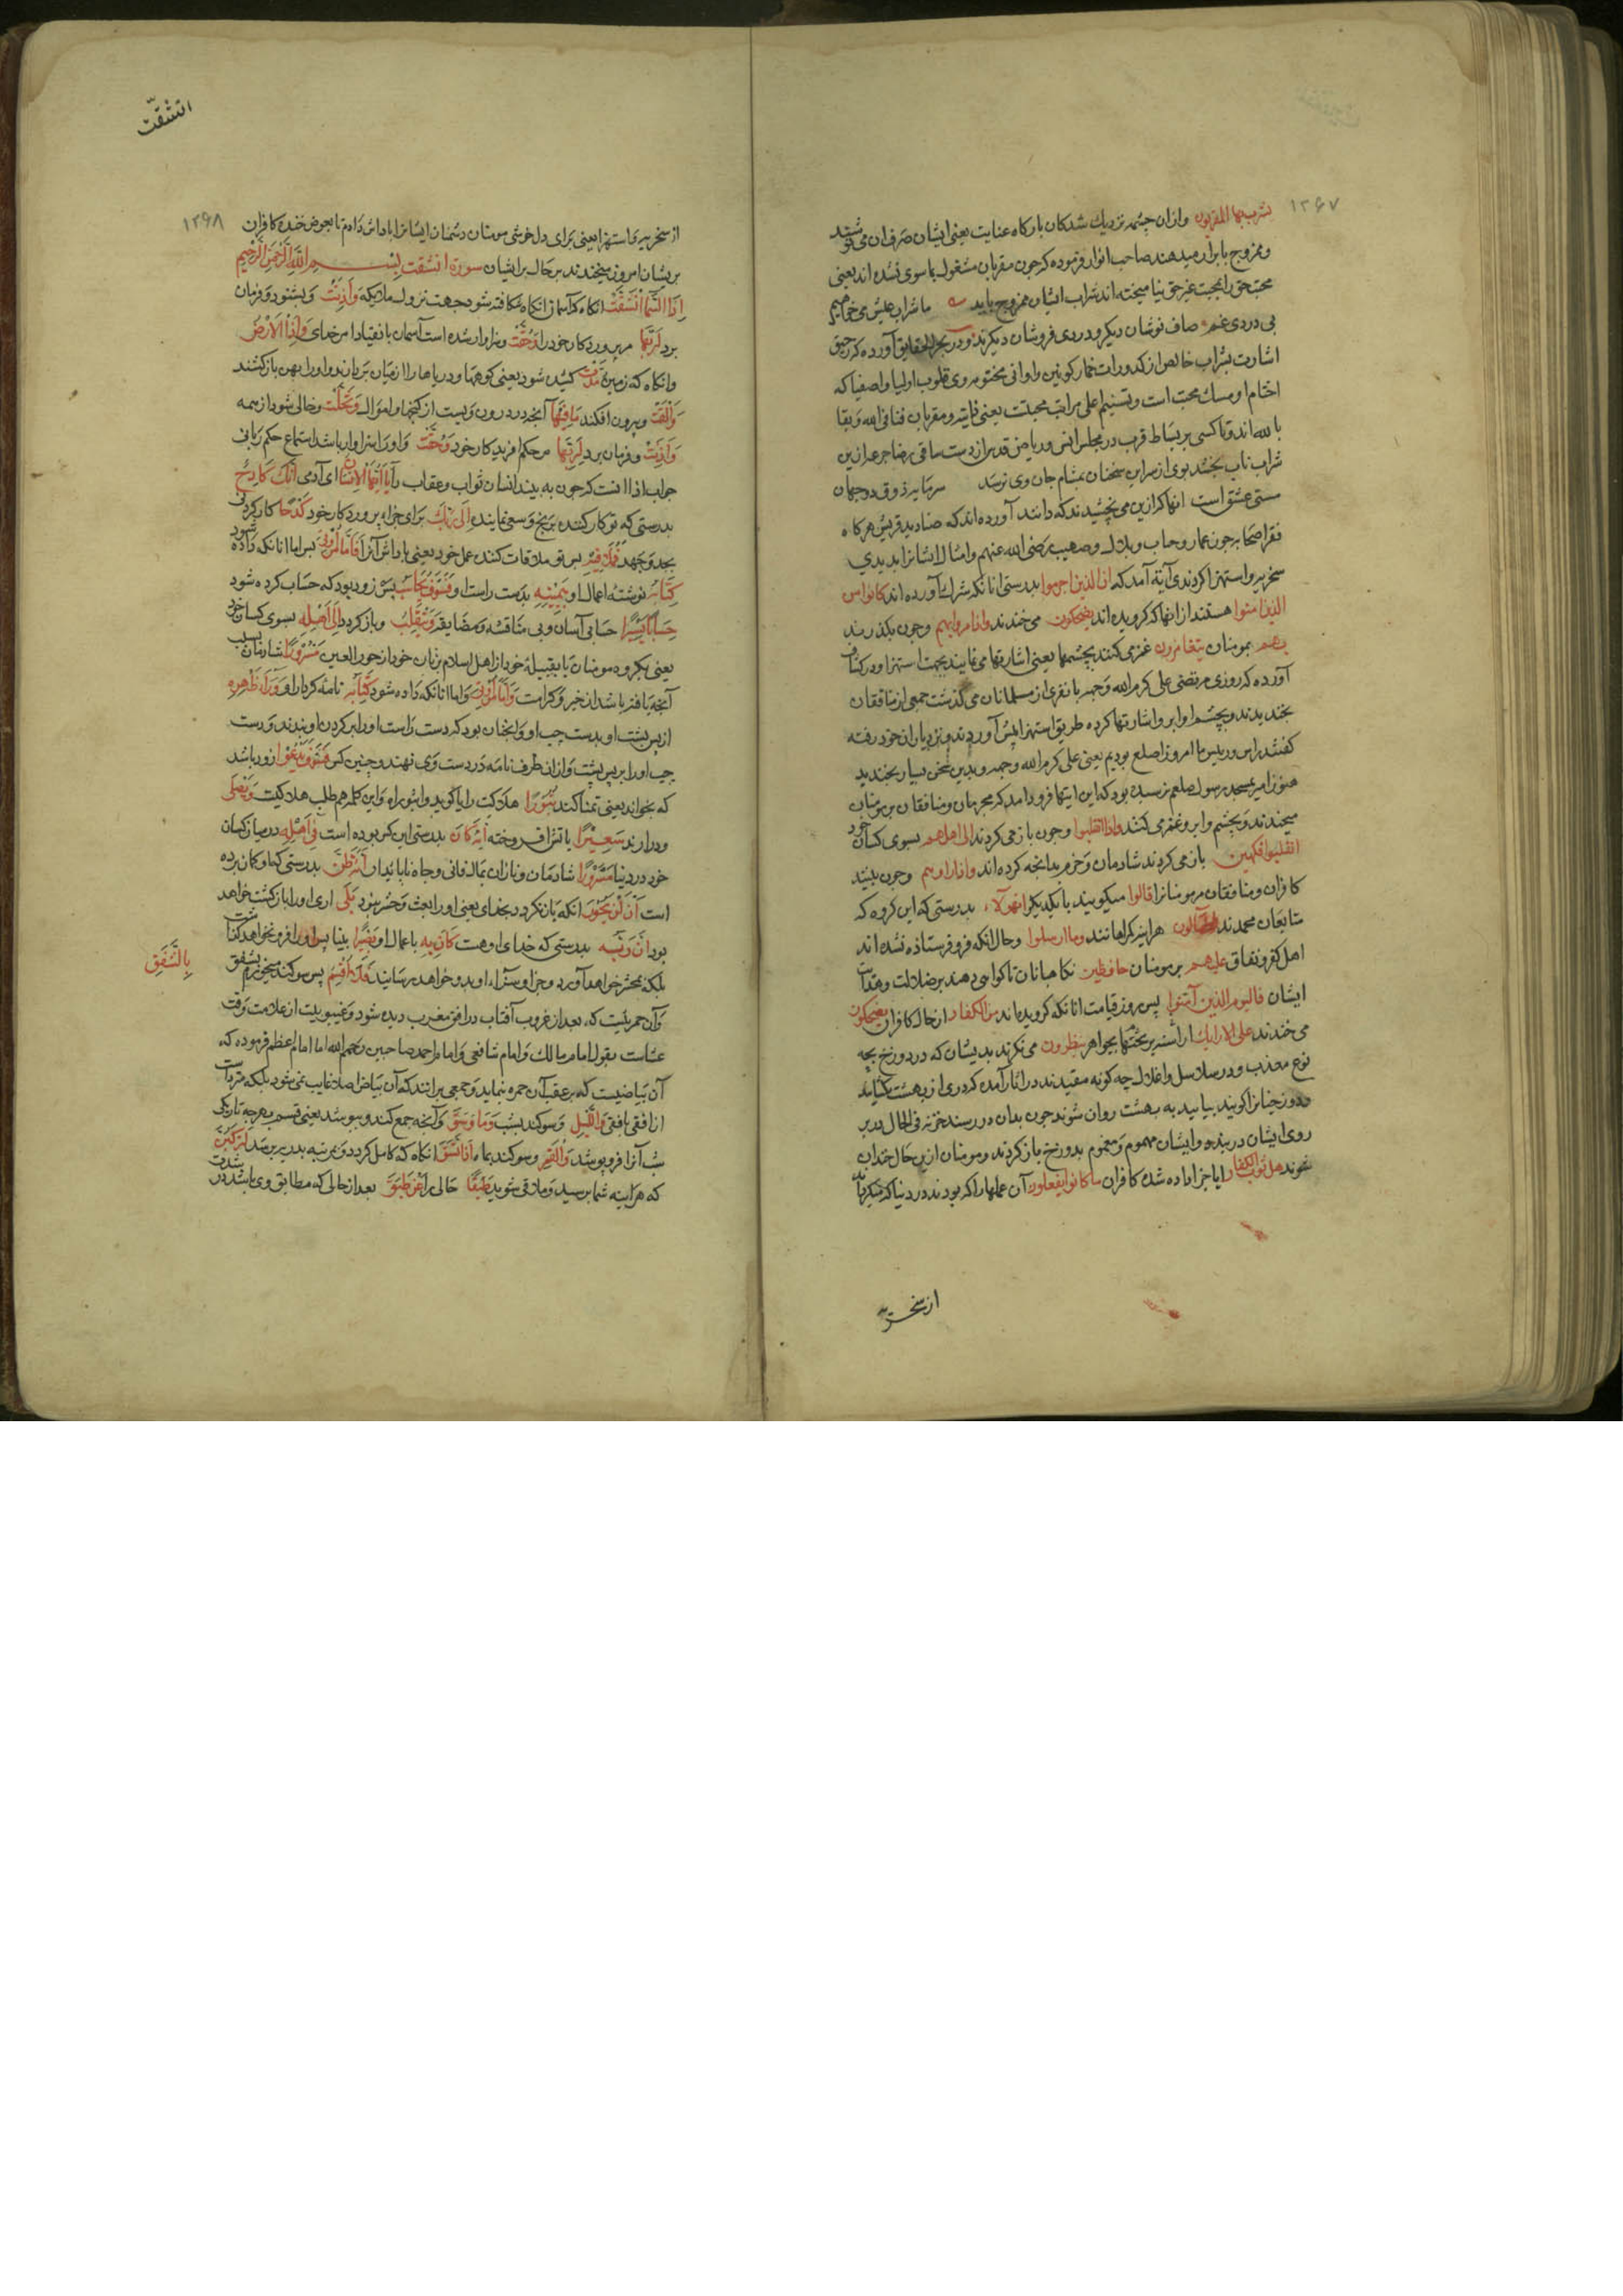 ۱۲۶۷
یشرب بها المقربون وازان چشمه نزدیك شدكان باركاه عنایت یعنی ایشان صرف ازان می نوشند
وممزوج بابرار میدهند صاحب انوار فرموده كه چون مقربان مشغول بما سوی نشده اند یعنی
محبت حق را بمحبت غیر حق نیامیخته اند شراب ایشان ممزوج نباید ما شراب عیش می خواهیم
بی دردی غم صاف نوشان دیكرو دردی فروشان دیكرند ودر بحر الحقایق آورده كه رحیق
اشارت بشراب خالص از كدورات خمار كونین واوانی مختومه وی قلوب اولیا واصفیا كه
ختام او مسك محبت است وتسنیم اعلی مراتب محبتت یعنی ذاتیه ومقربان فنا فی الله وبقا
بالله اند وتا كسی بر بساط قرب در مجلس انس وریاض قدس از دست ساقی رضا جرعه ازین
شراب ناب نچشد بوی از سر این سخنان بمشام جان وی نرسد سرمایه ذوق دو جهان
مستی عشق است انها كه ازین می نچشیدند كه دانند آورده اند كه صنادید قریش هركاه
فقرا صحابه چون عمار وخباب وبلال وصهیب رضی الله عنهم وامثال ایشانرا بدیدی
سخریه واستهزا كردندی آیة آمد كه ان الذین اجرموا بدرستی انانكه شرك آورده اند كانوا من
الذین امنوا هستند از انها كه كرویده اند یضحكون می خندند واذا مروا بهم وچون بكذرند
بهم بمومنان یتغامزون غمز می كنند بچشمها یعنی اشارتها می نمایند بجهت استهزا ودر كشاف
آورده كه روزی مرتضی علی كرم الله وجهه با نفری از مسلمانان می كذشت جمعی از منافقان
بخندیدند وبچشم وابرو اشارتها كرده طریق استهزا پیش آوردند ونزد یاران خود رفته
كفتند راس ورییس ما امروز اصلع بودیم یعنی علی كرم الله وجهه وبدین سخن بسیار بخندید
هنوز امیر بمسجد رسول صلعم نرسیده بود كه این ایتها فرود امد كه مجرمان ومنافقان بر مومنان
میخندند وبچشم وابرو غمز می كنند واذا انقلبوا وچون باز می كردند الی اهلهم بسوی كسان خود
انقلبوا فكهین باز می كردند شادمان وخرم بدانچه كرده اند واذا راوهم وچون ببینند
كافران ومنافقان مر مومنانرا قالوا میكویند با یكدیكر ان هؤلاء بدرستی كه این كروه كه
متابعان محمدند لضالون هراینه كمراهانند وما ارسلوا وحال انكه فرو فرستاده نشده اند
اهل كفر ونفاق علیهم بر مومنان حافظین نكاهبانان تا كواهی دهند بر ضلالت وهدایت
ایشان فالیوم الذین آمنوا پس روز قیامت انانكه كرویده اند من الكفار از حال كافران یضحكون
می خندند علی الارایك اراسته بر تختها بجواهر ینظرون می نكرند بدیشان كه در دوزخ بچه
نوع معذب ودر سلاسل واغلال چه كونه مقیدند در اثار آمده كه دری از بهشت بكشایند
ودوزخیانرا كویند بیایید به بهشت روان شوند چون بدان در رسند خزنه فی الحال در بر
روی ایشان دربندد وایشان مهموم ومغموم بدوزخ باز كردند ومومنان ازین حال خندان
شوند هل ثوب الكفار ایا جزا داده شدند كافران ما كانوا یفعلون آن عملها را كه بودند در دنیا كه میكردند
از سخریه
انشقّت
۱۲۶۸
از سخریه واستهزا یعنی برای دل خوشی مومنان دشمنان ایشانرا پاداش داده تا بعوض خنده كافران
بریشان امروز میخندند بر حال برایشان سورة انشقت بسم الله الرحمن الرحیم
اذا السماء انشقت انكاه كه آسمان انكاه شكافته شود جهت نزول ملایكه واذنت وبشنود وفرمان
برد لربها مر پروردكار خود را وحقت وسزاوار شده است آسمان بانقیاد امر خدای واذا الارض
وانكاه كه زمین مدت كشیده شود یعنی كوهها ودریاها را از میان بردارند واورا پهن بازكشند
والقت وبیرون افكند ما فیها آنچه در درون ویست از كنجها واموال وتخلت وخالی شود از همه
واذنت وفرمان برد لربها مر حكم افریدكار خود وحقت واورا سزاوار باشد استماع حكم ربانی
جواب اذا انست كه چون به بیند انسان ثواب وعقاب را یا ایها الانسان ای آدمی انك كادح
بدرستی كه تو كار كننده برنج وسعی نماینده الی ربك برای جزاء پروردكار خود كدحا كار كردنی
بجد وجهد فملاقیه پس تو ملاقات كننده عمل خود یعنی پاداش آنرا فاما من اوتی پس اما انانكه داده شود
كتابه نوشته اعمال او بیمینه بدست راست او فسوف یحاسب پس زود بود كه حساب كرده شود
حسابا یسیرا حسابی آسان وبی مناقشه ومضایقه وینقلب وباز كردد الی اهله بسوی كسان خود
یعنی بكروه مومنان یا بقبیله خود از اهل اسلام یا زنان خود از حور العین مسرورا شادمان بسبب
آنچه یافته باشد از خیر وكرامت واما من اوتی واما انانكه داده شود كتابه نامه كردار او وراء ظهره
از پس پشت او بدست چپ او وآنچنان بود كه دست راست اورا بر كردن او بندند ودست
چپ اورا بر پس پشت وازان طرف نامه در دست وی نهند وچنین كس فسوف یدعوا زود باشد
كه بخواند یعنی تمنا كند ثبورا هلاكت را یا كوید واثبوراه واین كلمه هم طلب هلاكیت ویصلی
ودرارند سعیرا باتش افروخته انه كان بدرستی این كس بوده است فی اهله در میان كسان
خود در دنیا مسرورا شادمان ونازان بمال فانی وجاه ناپایدار انه ظن بدرستی كه او كمان برده
است ان لن یحور انكه باز نكردد بخدای یعنی اورا بعث وحشر نبود بلی اری اورا بازكشت خواهد
بود ان ربه بدرستی كه خدای او هست كان به باعمال او بصیرا بینا پس اورا فرو نخواهد كذاشت
بلكه بمحشر خواهد آورد وجزا وسزاء او بدو خواهد رسانید فلا اقسم پس سوكند میخورم بشفق
بالشفق
وآن حمرتیست كه بعد از غروب آفتاب در افق مغرب دیده شود وغیبوبیت از علامت وقت
عشاست بقول امام مالك وامام شافعی وامام احمد وصاحبین رحمهم الله اما امام اعظم فرموده كه
آن بیاضیست كه بر عقب آن حمره نماید وجمعی برانند كه آن بیاض اصلا غایب نمی شود بلكه متردد است
از افقی بافقی واللیل وسوكند بشب وما وسق وآنچه جمع كند وبپوشد یعنی قسم بهرچه تاریكی
شب آنرا فرو پوشد والقمر وسوكند بماه اذا اتسق انكاه كه كامل كردد ومرتبه بدر رسد لتركبن
كه هراینه شما برسید وملاقی شوید طبقا حالی را عن طبق بعد از حالی كه مطابق وی باشد در شدت